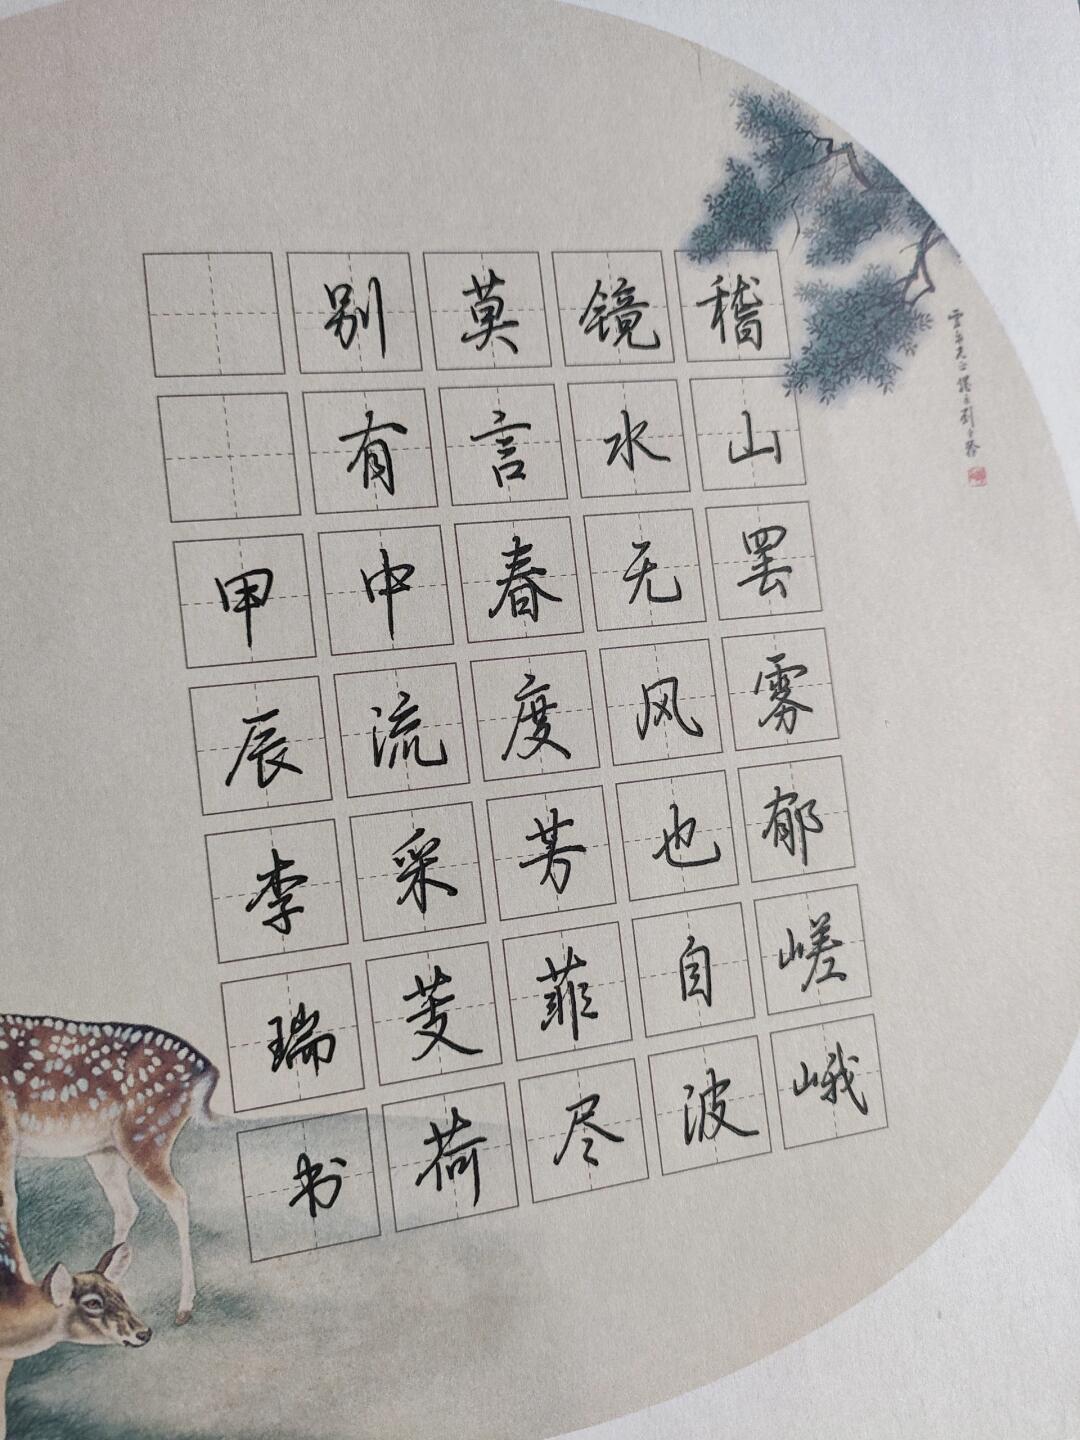 稽山罢雾郁嵯峨
镜水无风也自波
莫言春度芳菲尽
别有中流采芰荷
甲辰李瑞书